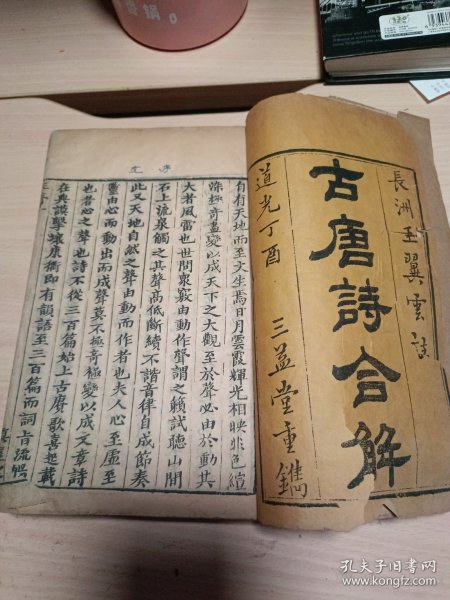 長洲王翼雲註
古唐詩合解
三益堂重鐫
道光丁酉
序文
自有天地而至文生焉日月雲霞輝光相映非色絢
染極奇盡變以成天下之大觀至於聲必由於動其
大者風雷也世間衆竅由動作聲謂之籟試聽山間
石上流泉觸之其聲高低斷續不諧音律自成節奏
此又天地自然之聲由動而作者也夫人心至虛至
靈由心而動出而成聲莫不極奇極變以成文章詩
也者心之聲也詩不從三百篇始上古賡歌喜起載
在典謨擊壤康衢即有韻語至三百篇而詞旨流
孔夫子旧书网
www.kongfz.com